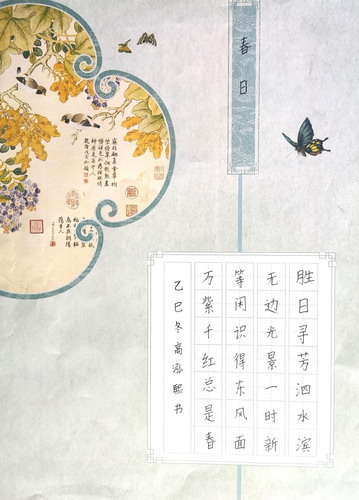 春日
胜日寻芳泗水滨
无边光景一时新
等闲识得东风面
万紫千红总是春
乙巳冬高泓熙书